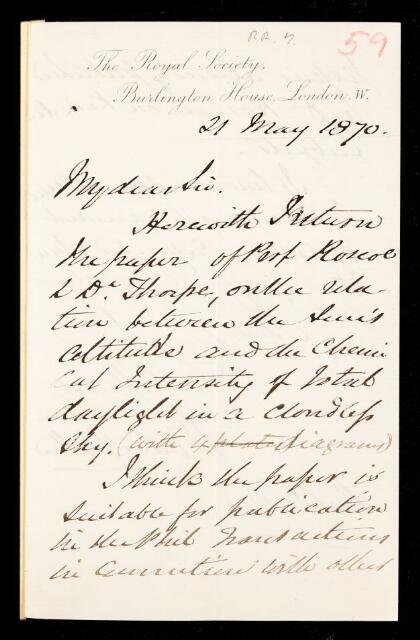 R.R. 7.
59
The Royal Society.
Burlington House, London. W.
21 May 1870.
My dear Sir.
Herewith I return
the paper of Prof Roscoe
& Dr. Thorpe, on the rela-
tion between the Sun's
altitude and the Chemi
cal Intensity of Total
daylight in a cloudless
sky. (with 4 plate diagrams)
I think the paper is
suitable for publication
in the Phil Transactions
in connection with other